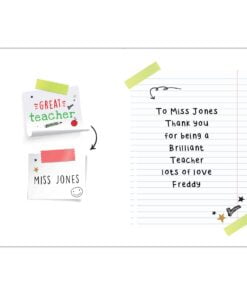 GREAT
teacher
MISS JONES
To Miss Jones
Thank you
for being a
Brilliant
Teacher
lots of love
Freddy